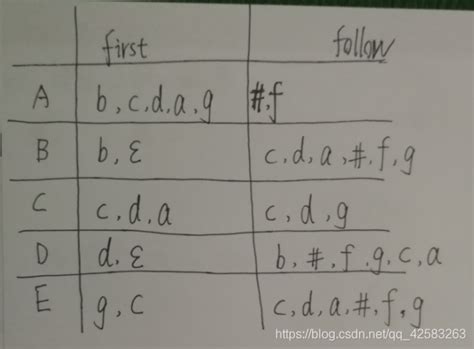 first follow
A b, c, d, a, g #, f
B b, ε c, d, a, #, f, g
C c, d, a c, d, g
D d, ε b, #, f, g, c, a
E g, c c, d, a, #, f, g
https://blog.csdn.net/qq_42583263